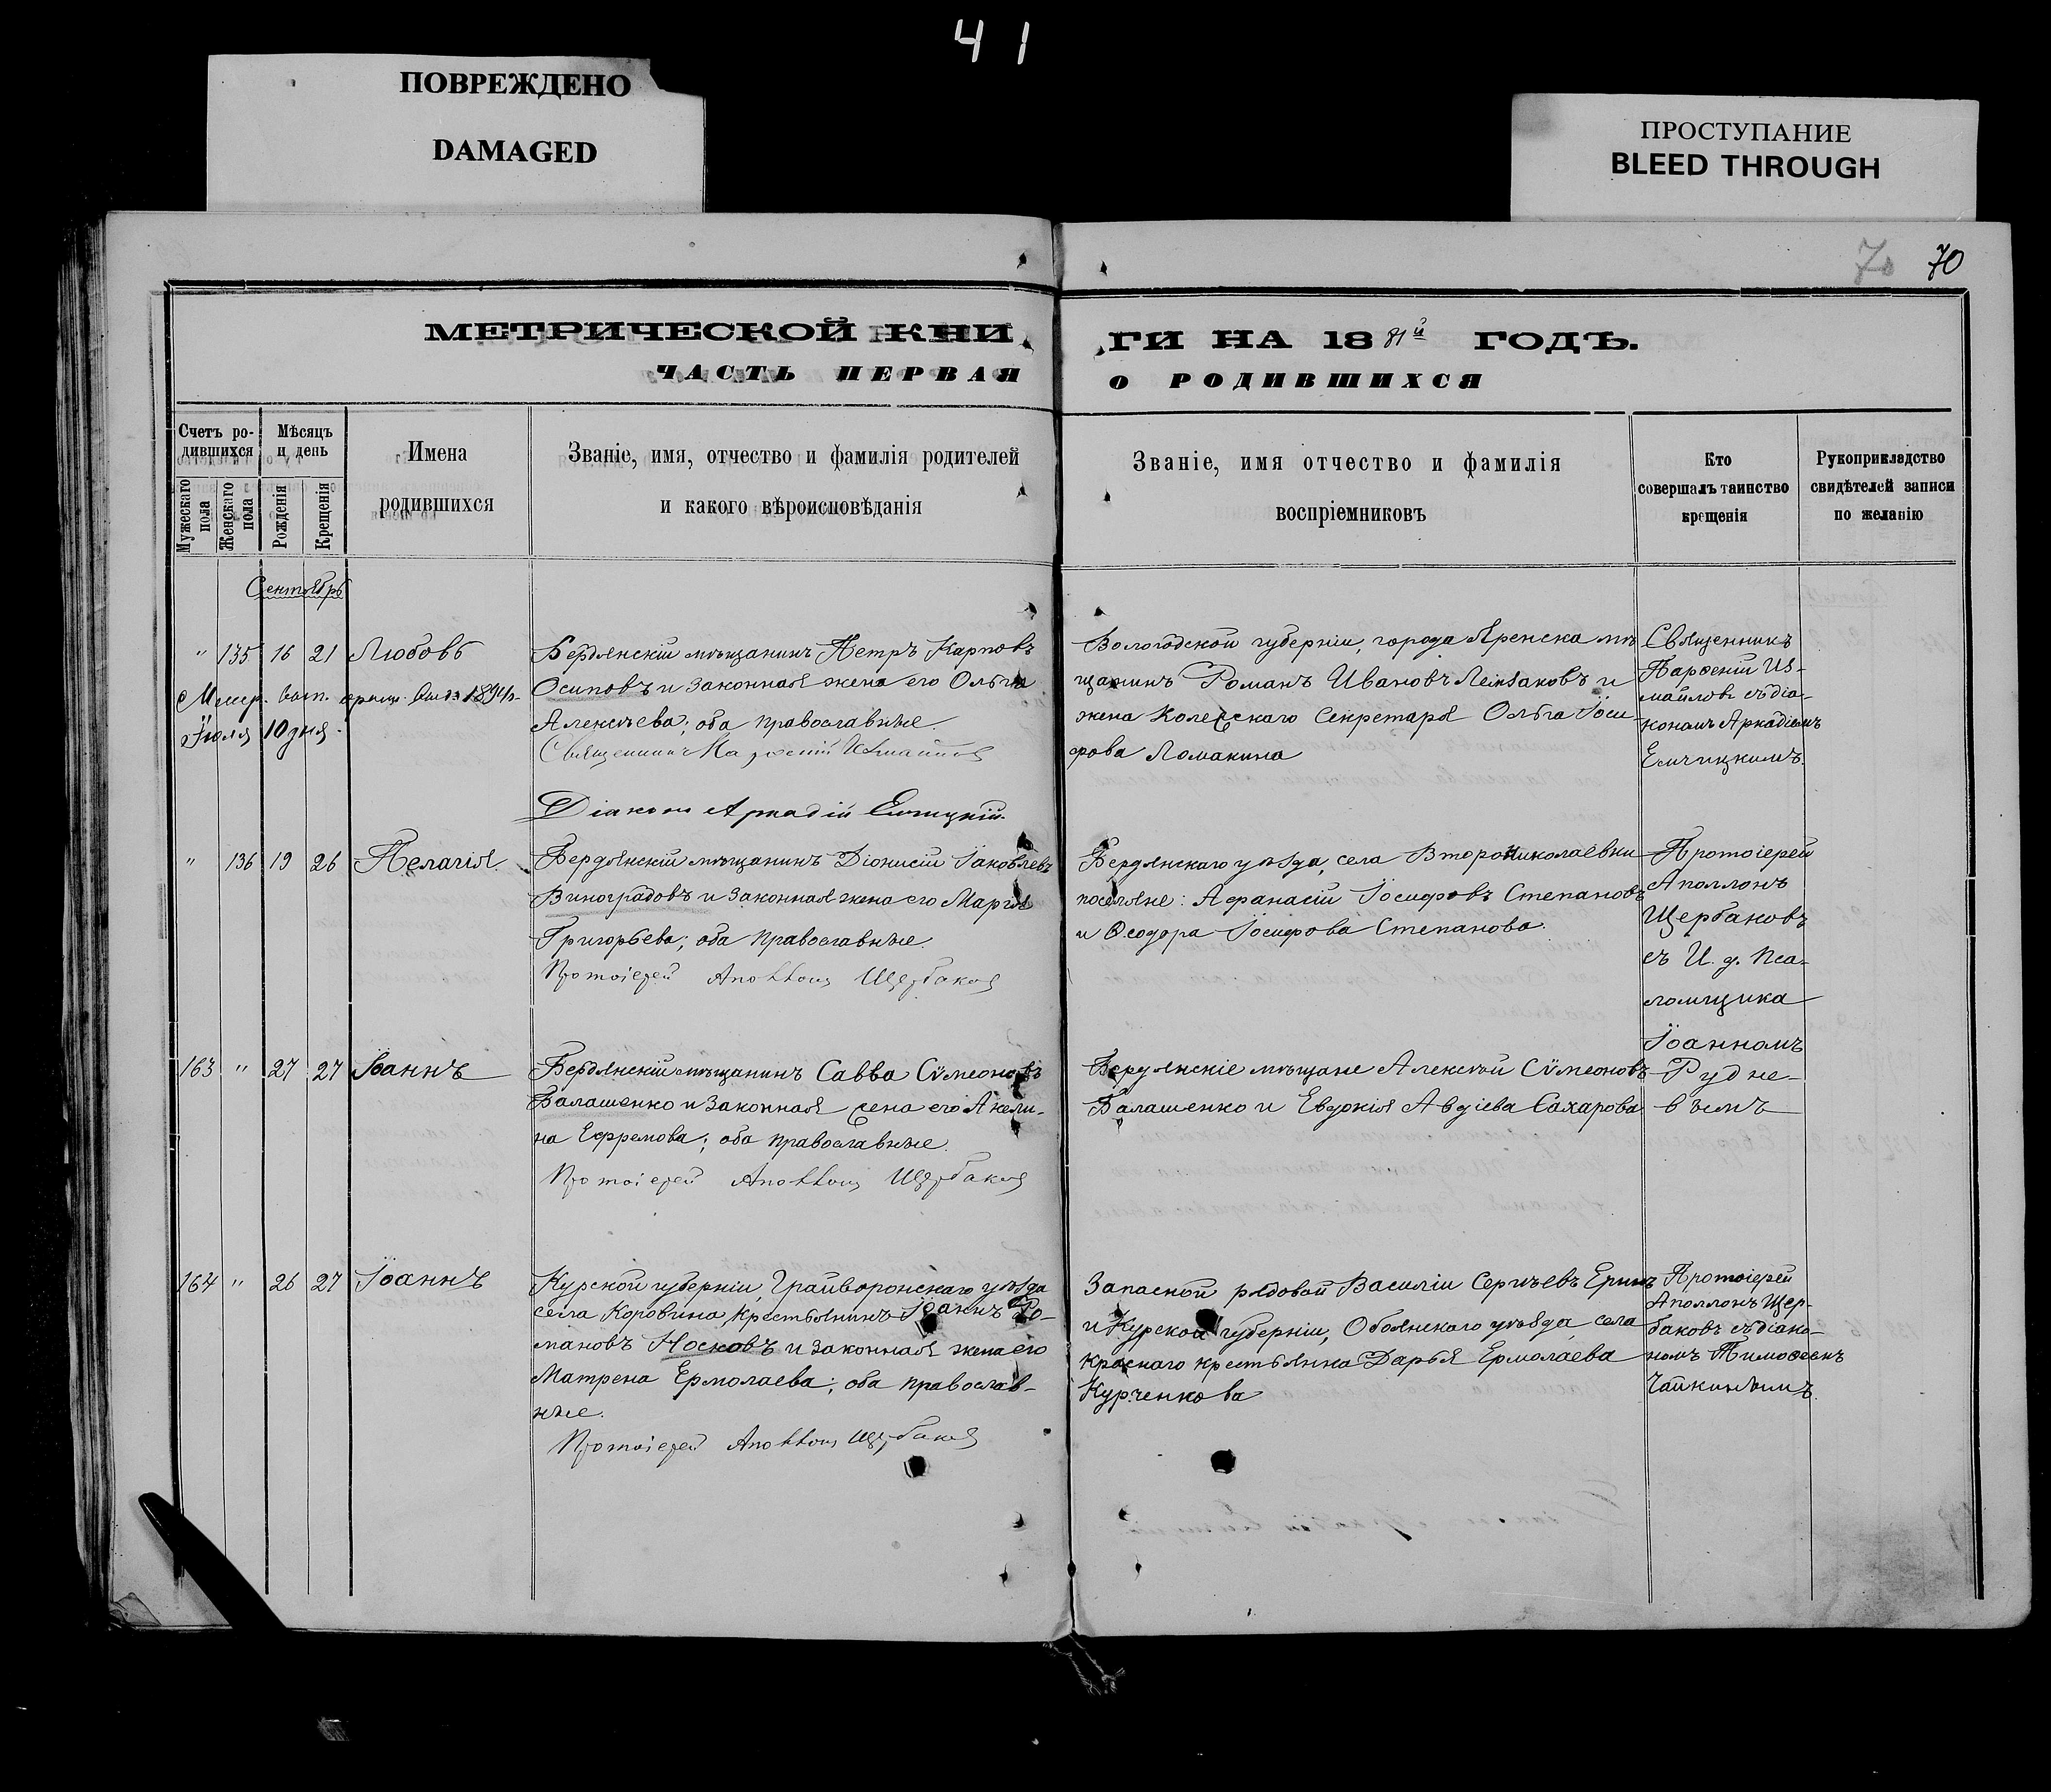 41
ПОВРЕЖДЕНО
DAMAGED
ПРОСТУПАНИЕ
BLEED THROUGH
70 70
МЕТРИЧЕСКОЙ КНИ
ГИ НА 1881й ГОДЪ.
ЧАСТЬ ПЕРВАЯ
О РОДИВШИХСЯ
Счетъ ро-
дившихся
Мужескаго пола
Женскаго пола
Мѣсяцъ
и день
Рожденія
Крещенія
Имена
родившихся
Званіе, имя, отчество и фамилія родителей
и какого вѣроисповѣданія
Званіе, имя отчество и фамилія
воспріемниковъ
Кто
совершалъ таинство
крещенія
Рукоприкладство
свидѣтелей записи
по желанію
Сентябрь
" 135 16 21 Любовь
Метр. вып. 1894 г.
Іюля 10 дня.
Бердянскій мѣщанинъ Петръ Карповъ
Осиповъ и законная жена его Ольга
Алексѣева; оба православные.
Священникъ Парѳеній Измаиловъ
Діаконъ Аркадій Емчицкій.
Вологодской губерніи, города Яренска мѣ
щанинъ Романъ Ивановъ и
жена Колежскаго Секретаря Ольга Іоси-
фова Ломакина
Священникъ
Парѳеній Из-
маиловъ съ діа-
кономъ Аркадіемъ
Емчицкимъ.
" 136 19 26 Пелагія.
Бердянскій мѣщанинъ Діонисій Іаковлевъ
Виноградовъ и законная жена его Марія
Григорьева; оба православные.
Протоіерей Аполлонъ Щербаковъ
Бердянскаго уѣзда, села Второниколаевки
поселяне: Афанасій Іосифовъ Степановъ
и Ѳеодора Іосифова Степанова.
Протоіерей
Аполлонъ
Щербаковъ
съ И. д. Пса-
ломщика
Іоанномъ
Рудне-
вымъ
163 " 27 27 Іоаннъ
Бердянскій мѣщанинъ Савва Сѵмеоновъ
Балашенко и законная жена его Акели-
на Ефремова; оба православные.
Протоіерей Аполлонъ Щербаковъ
Бердянскіе мѣщане Алексѣй Сѵмеоновъ
Балашенко и Евдокія Авдіева Сахарова
164 " 26 27 Іоаннъ
Курской губерніи, Грайворонскаго уѣзда
села Коровина, крестьянинъ Іоаннъ Ро-
мановъ Носковъ и законная жена его
Матрена Ермолаева; оба православ-
ные.
Протоіерей Аполлонъ Щербаковъ
Запасной рядовой Василій Сергѣевъ Еринъ
и Курской губерніи, Обоянскаго уѣзда, села
Краснаго крестьянка Дарья Ермолаева
Курченкова
Протоіерей
Аполлонъ Щер-
баковъ съ діако-
номъ Тимоѳеемъ
Чайкинымъ.